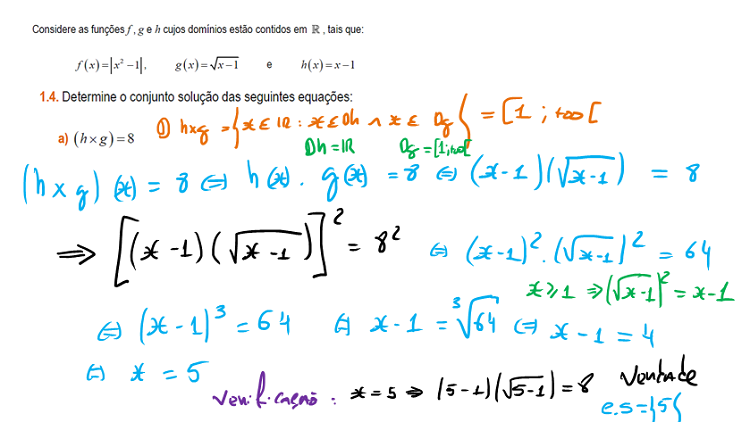 Considere as funções f , g e h cujos domínios estão contidos em ℝ , tais que:
f(x)=|x²−1|,    g(x)=√(x−1)    e    h(x)=x−1
1.4. Determine o conjunto solução das seguintes equações:
a) (h×g)=8    D h×g = {x ∈ IR : x ∈ Dh ∧ x ∈ Dg} = [1 ; +∞[
Dh = IR    Dg = [1;+∞[
(h×g)(x) = 8 ⇔ h(x) . g(x) = 8 ⇔ (x−1)(√(x−1)) = 8
⇒ [(x−1)(√(x−1))]² = 8² ⇔ (x−1)² . (√(x−1))² = 64
x ⩾ 1 ⇒ (√(x−1))² = x−1
⇔ (x−1)³ = 64 ⇔ x−1 = ³√64 ⇔ x−1 = 4
⇔ x = 5
Verificação : x = 5 ⇒ (5−1)(√(5−1)) = 8 Verdade
c.s = {5}